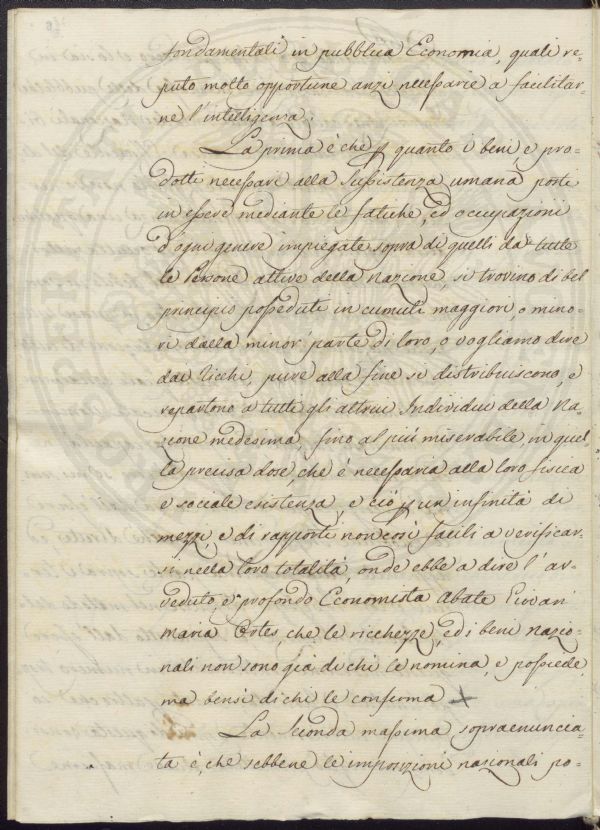 fondamentali in pubblica Economia, quali re-
puto molto opportune anzi necessarie a facilitar-
ne l'intelligenza.
La prima è che quanto i beni, e pro-
dotti necessarj alla sussistenza umana posti
in essere mediante le fatiche, ed occupazioni
d'ogni genere impiegate sopra di quelli da tutte
le Persone attive della Nazione, si trovino di bel
principio posseduti in cumuli maggiori, o mino-
ri dalla minor parte di loro, o vogliamo dire
dai ricchi, pure alla fine si distribuiscono, e
repartono a tutti gli altrui Individui della Na-
zione medesima, fino al più miserabile, in quel-
la precisa dose, che è necessaria alla loro fisica
e sociale esistenza, e ciò p un infinità di
mezzi, e di rapporti non così facili a verificar-
si nella loro totalità, onde ebbe a dire l'av-
veduto, e profondo Economista Abate Giovan
maria Ortes, che le ricchezze, ed i beni nazio-
nali non sono già di chi le nomina, e possiede,
ma bensì di chi le consuma +
La Seconda massima sopraenuncia-
ta è, che sebbene le imposizioni nazionali po-